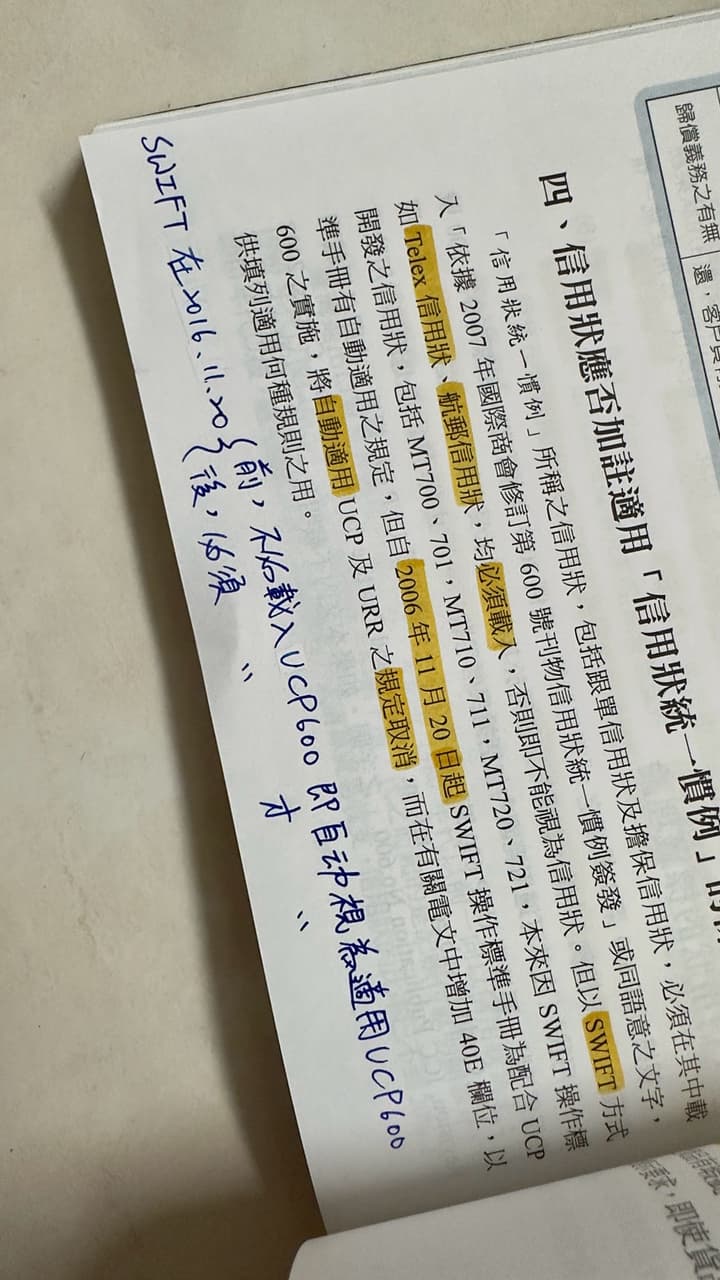 歸償義務之有無
還，客戶
四、信用狀應否加註適用「信用狀統一慣例」的
「信用狀統一慣例」所稱之信用狀，包括跟單信用狀及擔保信用狀，必須在其中載
入「依據 2007 年國際商會修訂第 600 號刊物信用狀統一慣例簽發」或同語意之文字，
如 Telex 信用狀、航郵信用狀，均必須載入，否則即不能視為信用狀。但以 SWIFT 方式
開發之信用狀，包括 MT700、701，MT710、711，MT720、721，本來因 SWIFT 操作標
準手冊有自動適用之規定，但自 2006 年 11 月 20 日起 SWIFT 操作標準手冊為配合 UCP
600 之實施，將自動適用 UCP 及 URR 之規定取消，而在有關電文中增加 40E 欄位，以
供填列適用何種規則之用。
SWIFT 在2016.11.20
前，不必載入UCP600 即自动視為適用UCP600
後，必須 〃 才 〃
即使貨